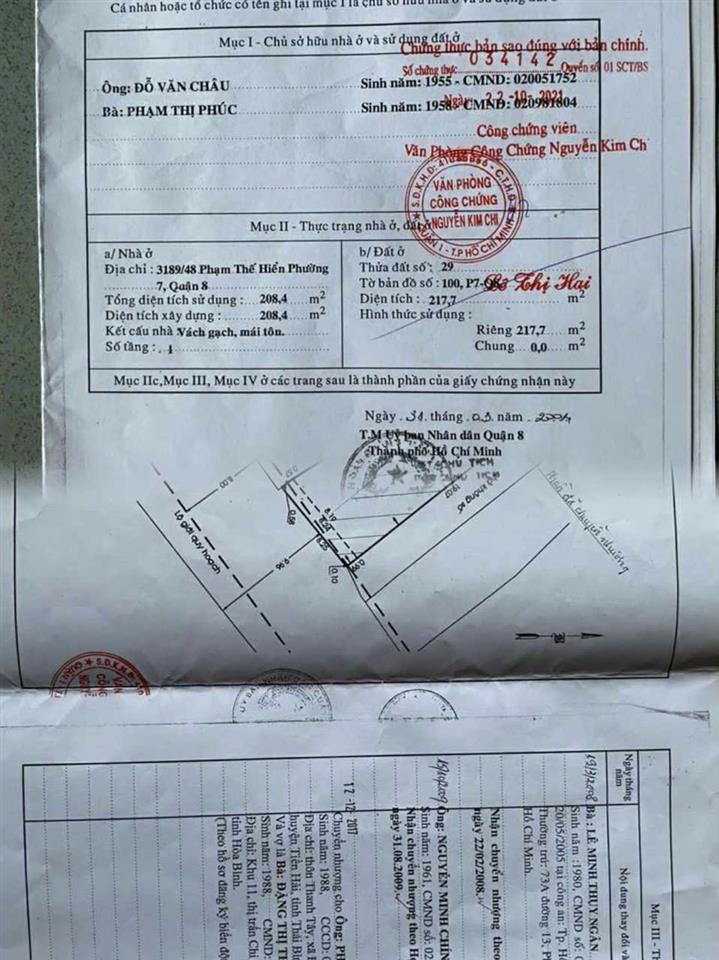 Cá nhân hoặc tổ chức có tên ghi tại mục I là chủ sở hữu nhà ở và sử dụng đất ở
Mục I - Chủ sở hữu nhà ở và sử dụng đất ở
Chứng thực bản sao đúng với bản chính.
Số chứng thực 034142 Quyển số 01 SCT/BS
Ông: ĐỖ VĂN CHÂU Sinh năm: 1955 - CMND: 020051752
Ngày 22-10-2021
Bà: PHẠM THỊ PHÚC Sinh năm: 1958 - CMND: 020981804
Công chứng viên
Văn Phòng Công Chứng Nguyễn Kim Ch
VĂN PHÒNG
CÔNG CHỨNG
NGUYỄN KIM CHI
QUẬN 1 - T.P HỒ CHÍ MINH
Mục II - Thực trạng nhà ở, đất ở
a/ Nhà ở
Địa chỉ : 3189/48 Phạm Thế Hiển Phường
7, Quận 8
Tổng diện tích sử dụng : 208,4 m2
Diện tích xây dựng : 208,4 m2
Kết cấu nhà : Vách gạch, mái tôn.
Số tầng : 1
b/ Đất ở
Thửa đất số : 29
Tờ bản đồ số : 100, P7-Q8
Lê Thị Hai
Diện tích : 217,7 m2
Hình thức sử dụng :
Riêng 217,7 m2
Chung 0,0 m2
Mục IIc, Mục III, Mục IV ở các trang sau là thành phần của giấy chứng nhận này
Ngày 31 tháng 03 năm 2004
T.M Uỷ ban Nhân dân Quận 8
Thành phố Hồ Chí Minh
CHỦ TỊCH
8.00
Lộ giới quy hoạch
0.58
8.19
8.25
9.96
0.10
19.07
VĂN
CÔNG
Mục III - Th
Ngày tháng năm
Nội dung thay đổi và
Bà : LÊ MINH THỤY NGÂN.
Sinh năm : 1980, CMND số:
20/05/2005 tại công an: Tp. H
Thường trú: 73A đường 13, P
Hồ Chí Minh.
Nhận chuyển nhượng theo
ngày 22/02/2008.
Ông: NGUYỄN MINH CHÍN
Sinh năm: 1961, CMND số: 02
Nhận chuyển nhượng theo H
ngày 31.08.2009.
12-12-2017
Chuyển nhượng cho Ông: PH
Sinh năm: 1988, CCCD:
Địa chỉ: thôn Thanh Tây, xã
huyện Tiền Hải, tỉnh Thái B
Và vợ là Bà: ĐẶNG THỊ T
Sinh năm: 1988, CMND:
Địa chỉ: Khu 11, thị trấn Chi
tỉnh Hòa Bình.
(Theo hồ sơ đăng ký biến độ